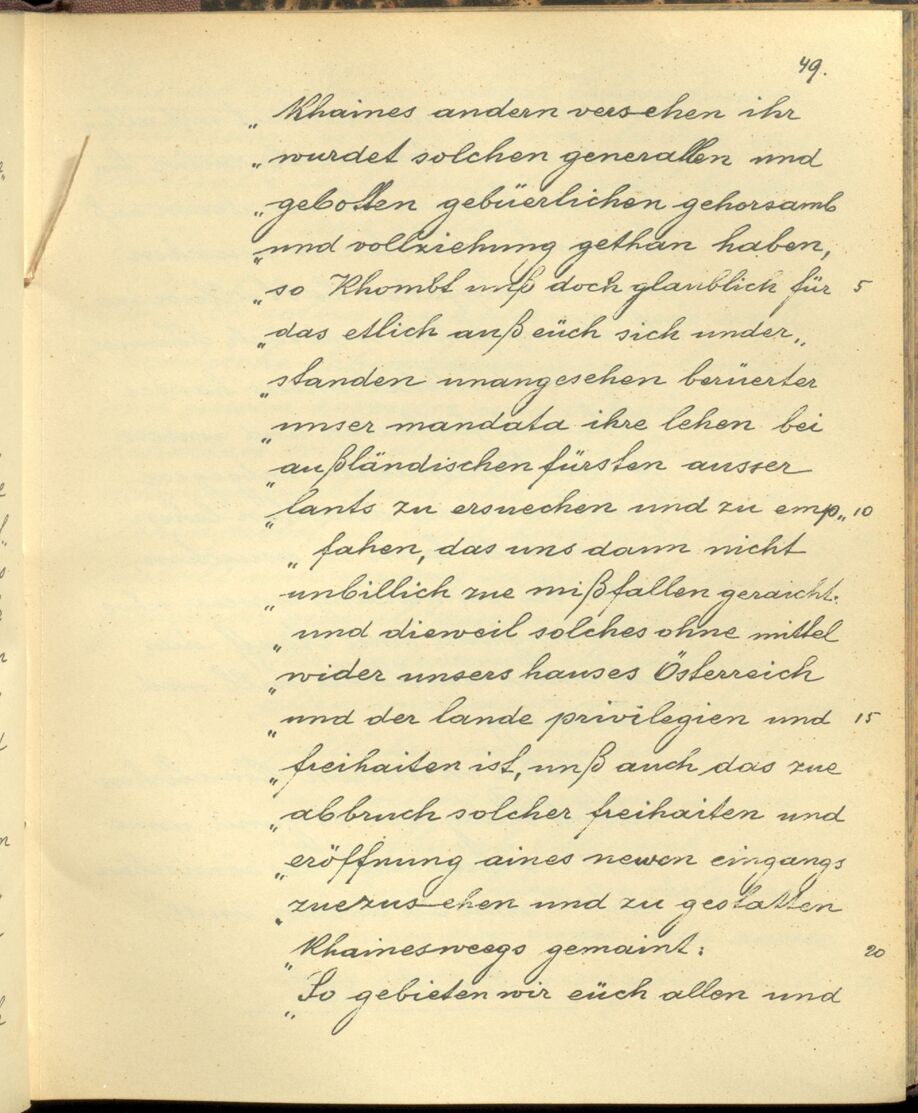 49.
„Khaines andern versehen ihr
„wurdet solchen generallen und
„gebotten gebüerlichen gehorsamb
„und vollziehung gethan haben,
„so Khombt unß doch glaublich für 5
„das etlich auß eüch sich under„
„standen unangesehen berüerter
„unser mandata ihre lehen bei
„außländischen fürsten ausser
„lants zu ersuechen und zu emp„ 10
„fahen, das uns dann nicht
„unbillich zue mißfallen geraicht.
„und dieweil solches ohne mittel
„wider unsers hauses Österreich
„und der lande privilegien und 15
„freihaiten ist, unß auch das zue
„abbruch solcher freihaiten und
„eröffnung aines newen eingangs
„zuezusehen und zu gestatten
„Khainesweegs gemaint:  20
„So gebieten wir eüch allen und